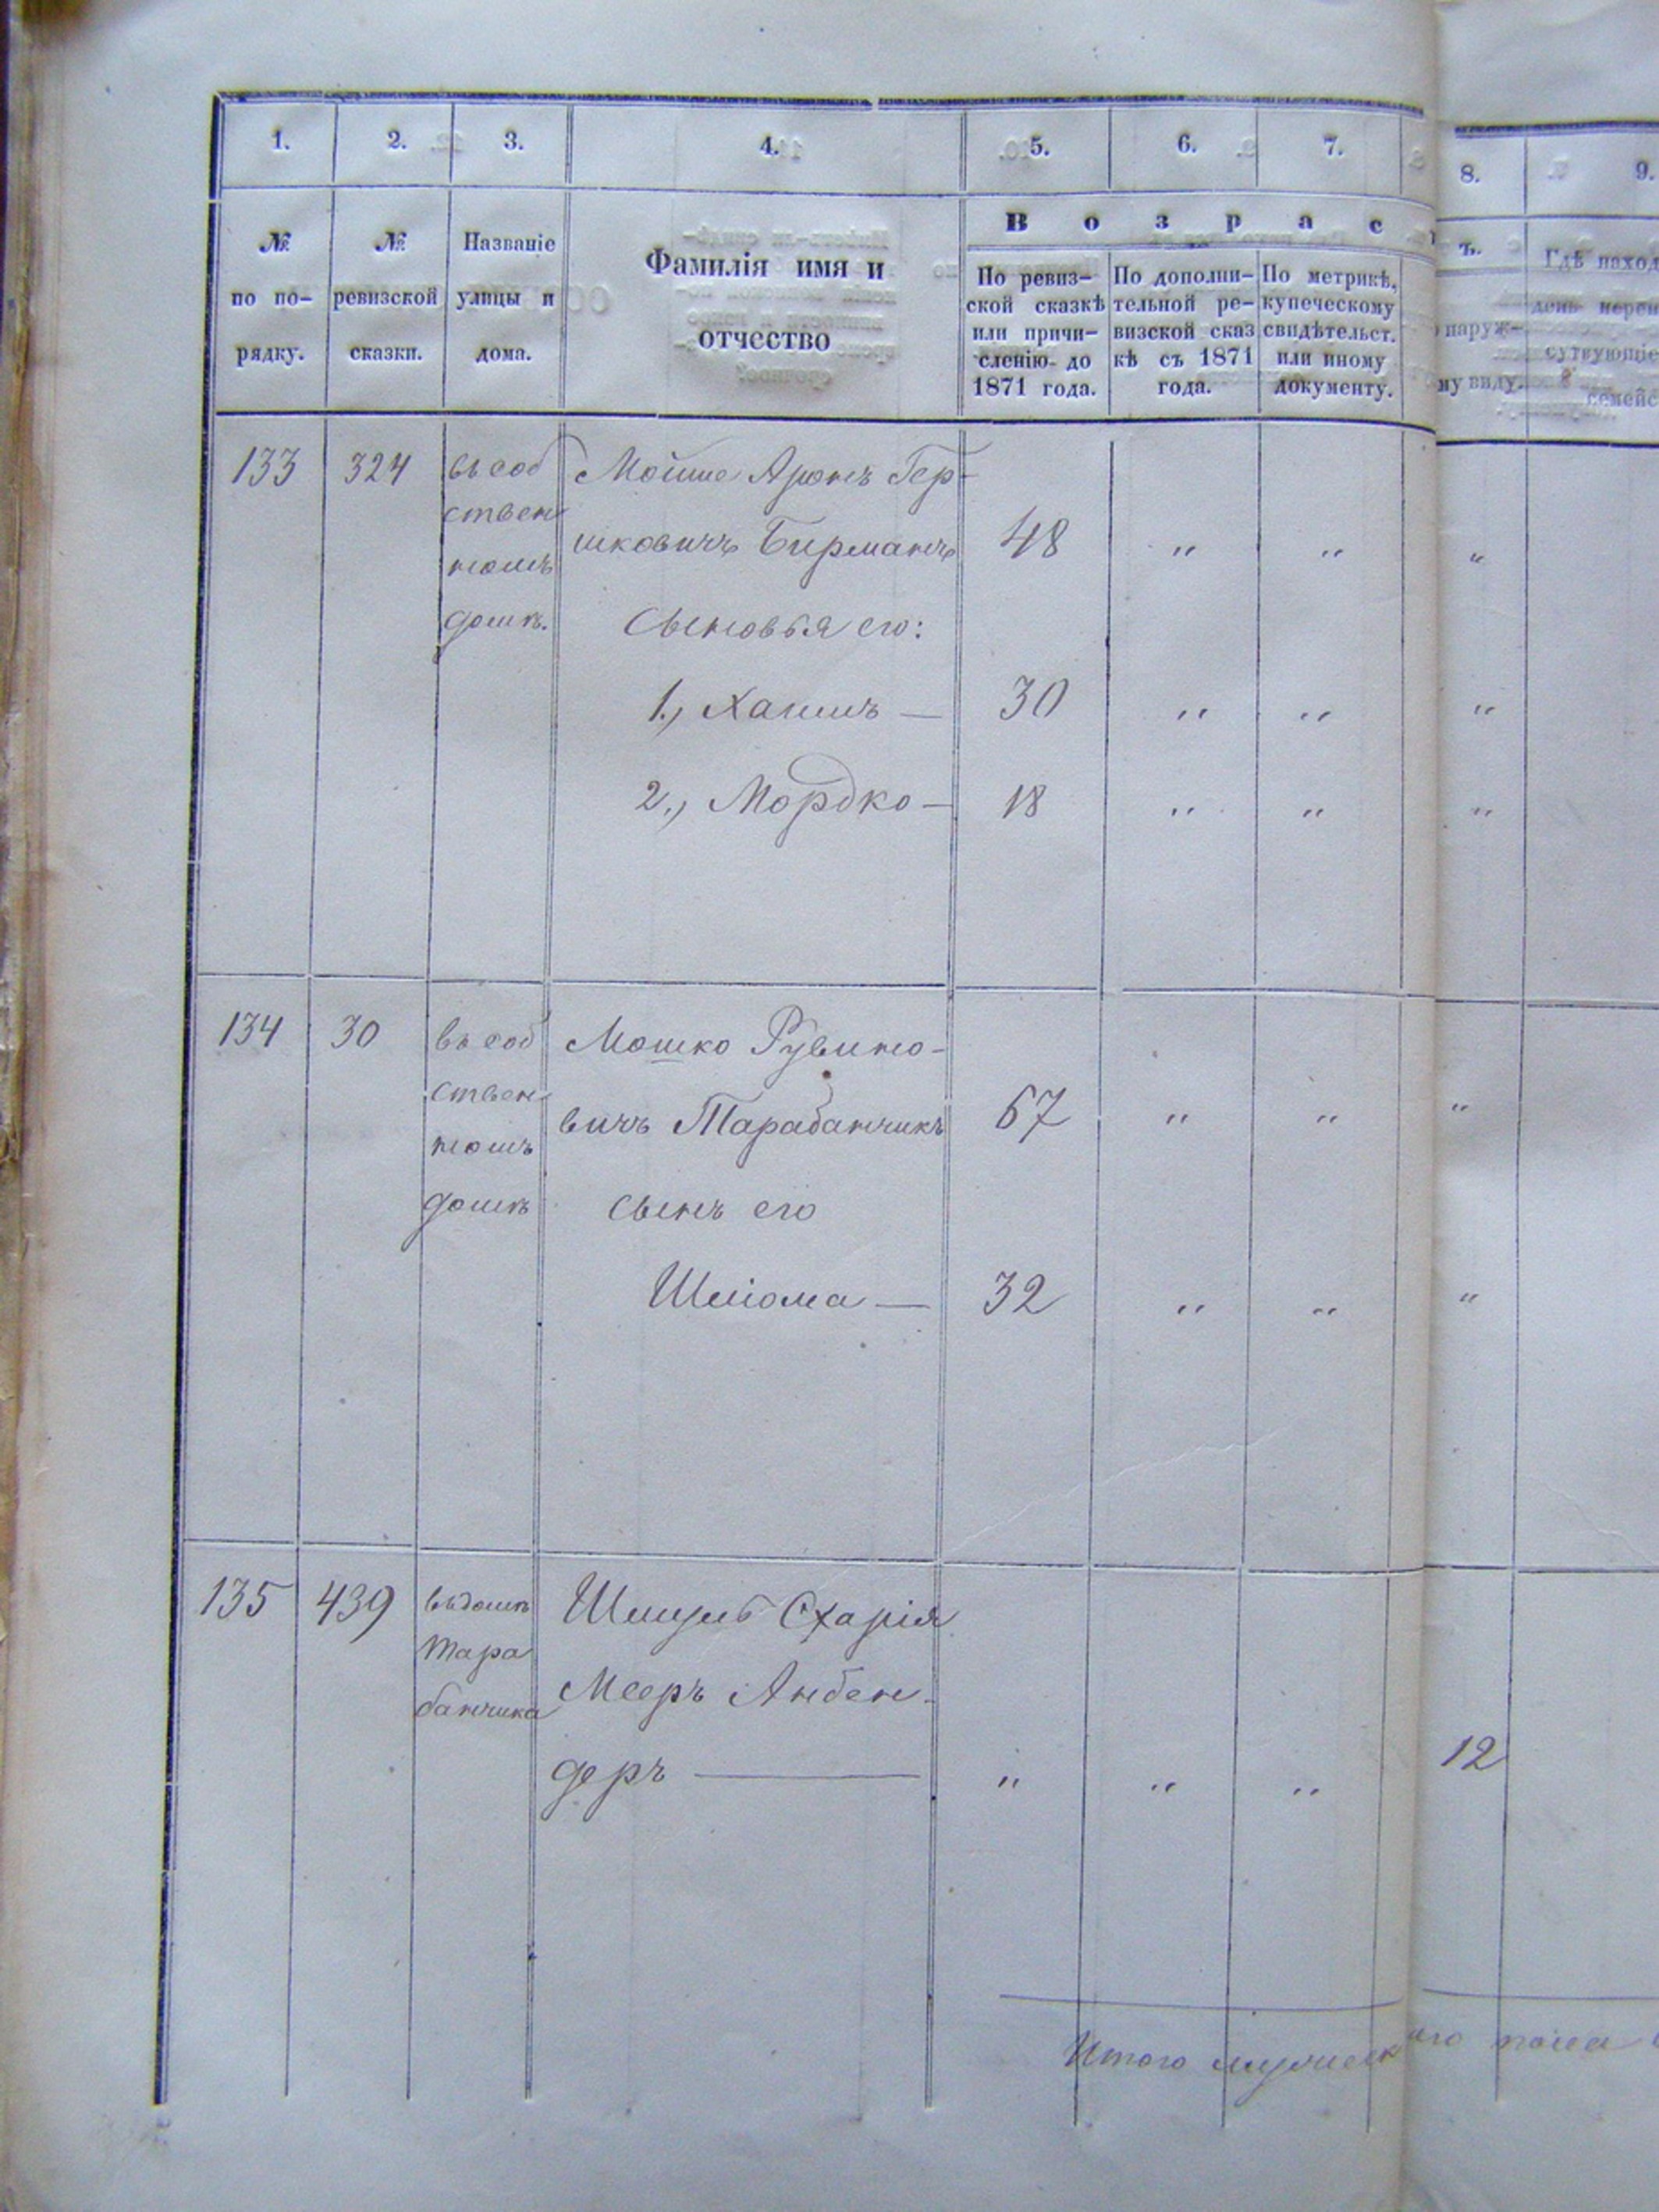 1. 2. 3. 4. 5. 6. 7. 8. 9.
№ по по-
рядку.
№
ревизской
сказки.
Названіе
улицы и
дома.
Фамилія имя и
отчество
В о з р а с т ъ.
По ревиз-
ской сказкѣ
или причи-
сленію до
1871 года.
По дополни-
тельной ре-
визской сказ
кѣ съ 1871
года.
По метрикѣ,
купеческому
свидѣтельст.
или иному
документу.
наруж-
му виду.
Гдѣ наход
день
сутвующіе
семейс
133 324 въ соб Мойше Аронъ Гер-
ствен
шковичъ Бирманъ 48 " " "
номъ
домѣ. Сыновья его:
1., Хаимъ — 30 " " "
2., Мордко — 18 " " "
134 30 въ соб Мошко Рувино-
ствен
вичъ Тарабанчикъ 67 " " "
номъ
домѣ сынъ его
Шліома — 32 " " "
135 439 въ домѣ Схарія
Тара
банчика Мееръ Анбен-
деръ — " " " 12
Итого мужеск
ого пола